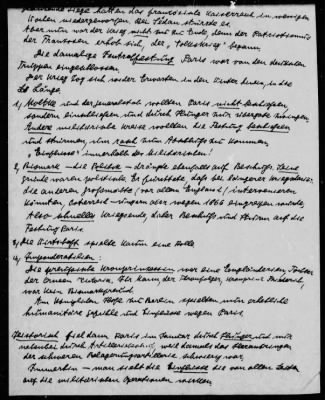 glänzende Siege hatten das französische Kaiserreich in wenigen
Wochen niedergeworfen. Mit Sedan stürzte es.
Aber nun war der Krieg nicht aus zu Ende, denn der Patriotismus
der Franzosen erhob sich, der "Volkskrieg" begann.
Die damalige Zentralfestung Paris war von den deutschen
Truppen eingeschlossen.
Der Krieg zog sich wider Erwarten in den Winter hinein, in die
Länge.
1) Moltke und der Generalstab wollten Paris nicht beschießen,
sondern einschließen und durch Hunger zur Übergabe zwingen.
Andere militärische Kreise wollten die Festung beschießen
und stürmen, um rasch zum Abschluß zu kommen,
"Einflüsse" innerhalb der Militärs!
2) Bismarck = die Politik = drängte ebenfalls auf Beschuß. Seine
Gründe waren politische. Er fürchtete, daß bei längerer Kriegsdauer
die anderen Großmächte (vor allem England) intervenieren
könnten, Österreich-Ungarn aber wegen 1866 eingreifen würde.
Also schnelles Kriegsende, daher Beschuß und Sturm auf die
Festung Paris.
3) Die Wirtschaft spielte kaum eine Rolle.
4) Imponderabilien:
Die preußische Kronprinzessin war eine Engländerin, Tochter
der Queen Victoria. Ihr Mann, der Thronfolger, Kronprinz Friedrich,
war kein Bismarckfreund.
Am königlichen Hofe zu Berlin spielten nun erhebliche
humanitäre Gefühle und Einflüsse wegen Paris.
Historisch fiel dann Paris im Januar durch Hunger und nur
nebenbei durch Artilleriebeschuß, weil damals das Heranbringen
der schweren Belagerungsartillerie schwierig war.
Immerhin - man sieht die Einflüsse die von allen Seiten
auf die militärischen Operationen wirkten.